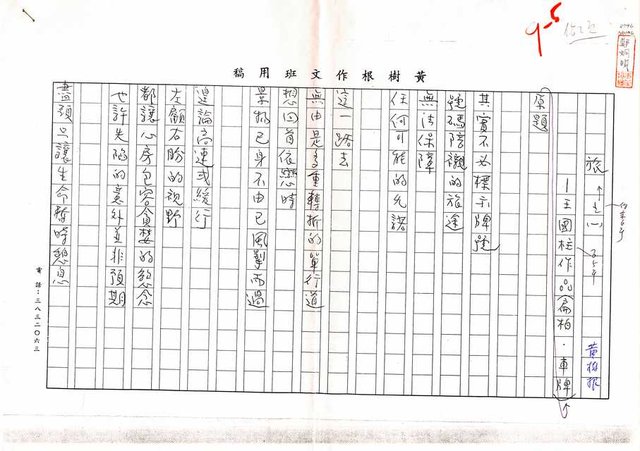 9-5
黃樹根作文班用稿
旅
之(一)
黃樹根
—王國柱作品(扁柏·車牌)
原題
其實不必標示牌號
號碼陪襯的旅途
無法保障
任何可能的允諾
這一路去
無由是多重轉折的單行道
想回首依戀時
景物已身不由己風掣而過
遑論高速或緩行
左顧右盼的視野
都讓心房包容貪婪的慾念
也許失陷的意外並非預期
盡須只讓生命暫時憩息
電話：三八三二〇六三